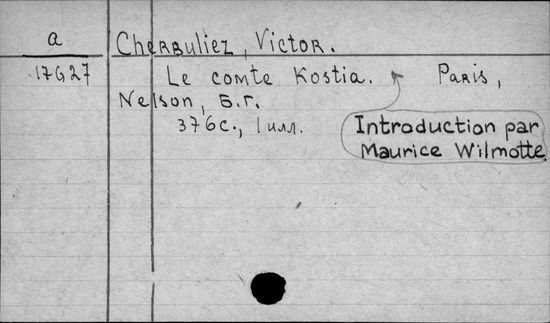 a
Cherbuliez, Victor.
17G27
Le comte Kostia. Paris,
Nelson, Б.г.
376с., 1 илл.
Introduction par
Maurice Wilmotte.